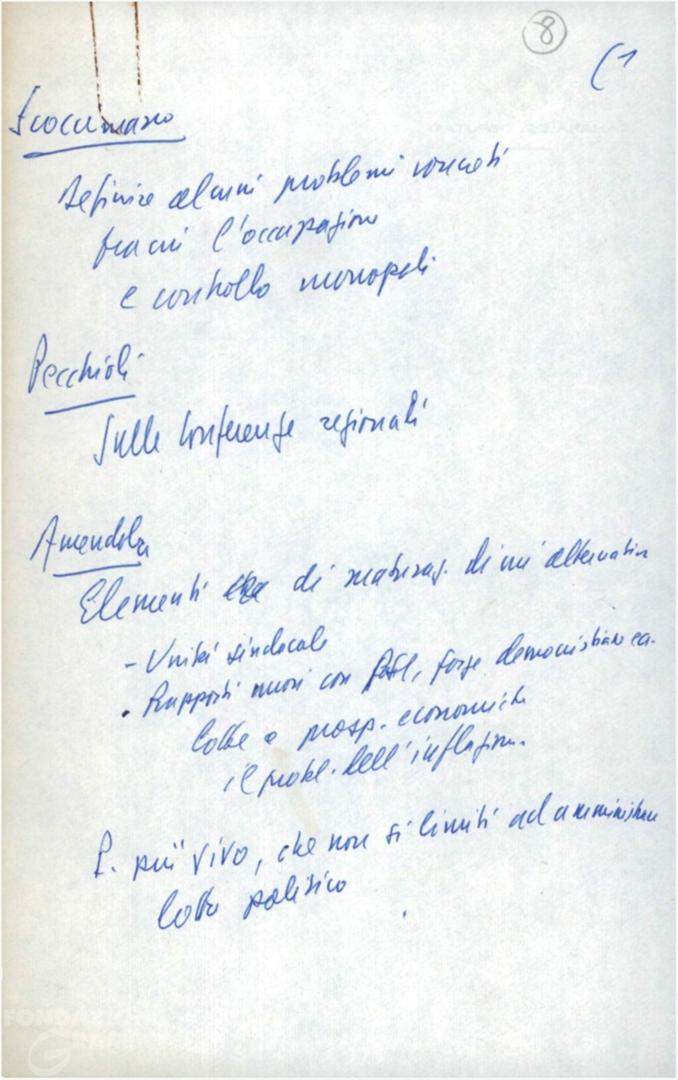 8
(1
Scoccimarro
Definire alcuni problemi concreti
fra cui l'occupazione
e controllo monopoli
Pecchioli
Sulle Conferenze regionali
Amendola
Elementi di maturaz. di un'alternativa
- Unità sindacale
- Rapporti nuovi con forze democristiane ca.
Lotte e prosp. economiche
il probl. dell'inflazione.
P. più vivo, che non si limiti ad amministrare
lotta politica
FONDAZIONE
GRAMSCI